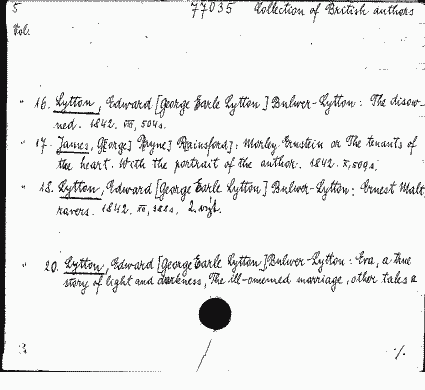 5 77035 Collection of British authors
Vol.
" 16. Lytton, Edward [George Earle Lytton] Bulwer-Lytton: The disow-
ned. 1842. VIII, 504 s.
" 17. James, G[eorge] P[ayne] Rainsford]: Morley Ernstein or The tenants of
the heart. With the portrait of the author. 1842. X, 509 s.
" 18. Lytton, Edward [George Earle Lytton] Bulwer-Lytton: Ernest Malt-
ravers. 1842. 382 s.
" 20. Lytton, Edward [George Earle Lytton] Bulwer-Lytton: Eva, a true
story of light and darkness, The ill-omened marriage, other tales a
3 ./.